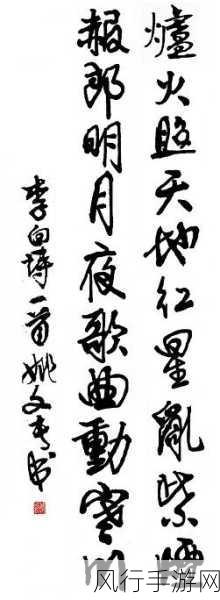 爐火照天地紅星亂紫煙
赧郎明月夜歌曲動寒川
李白詩一首姚文奎書
风行手游网